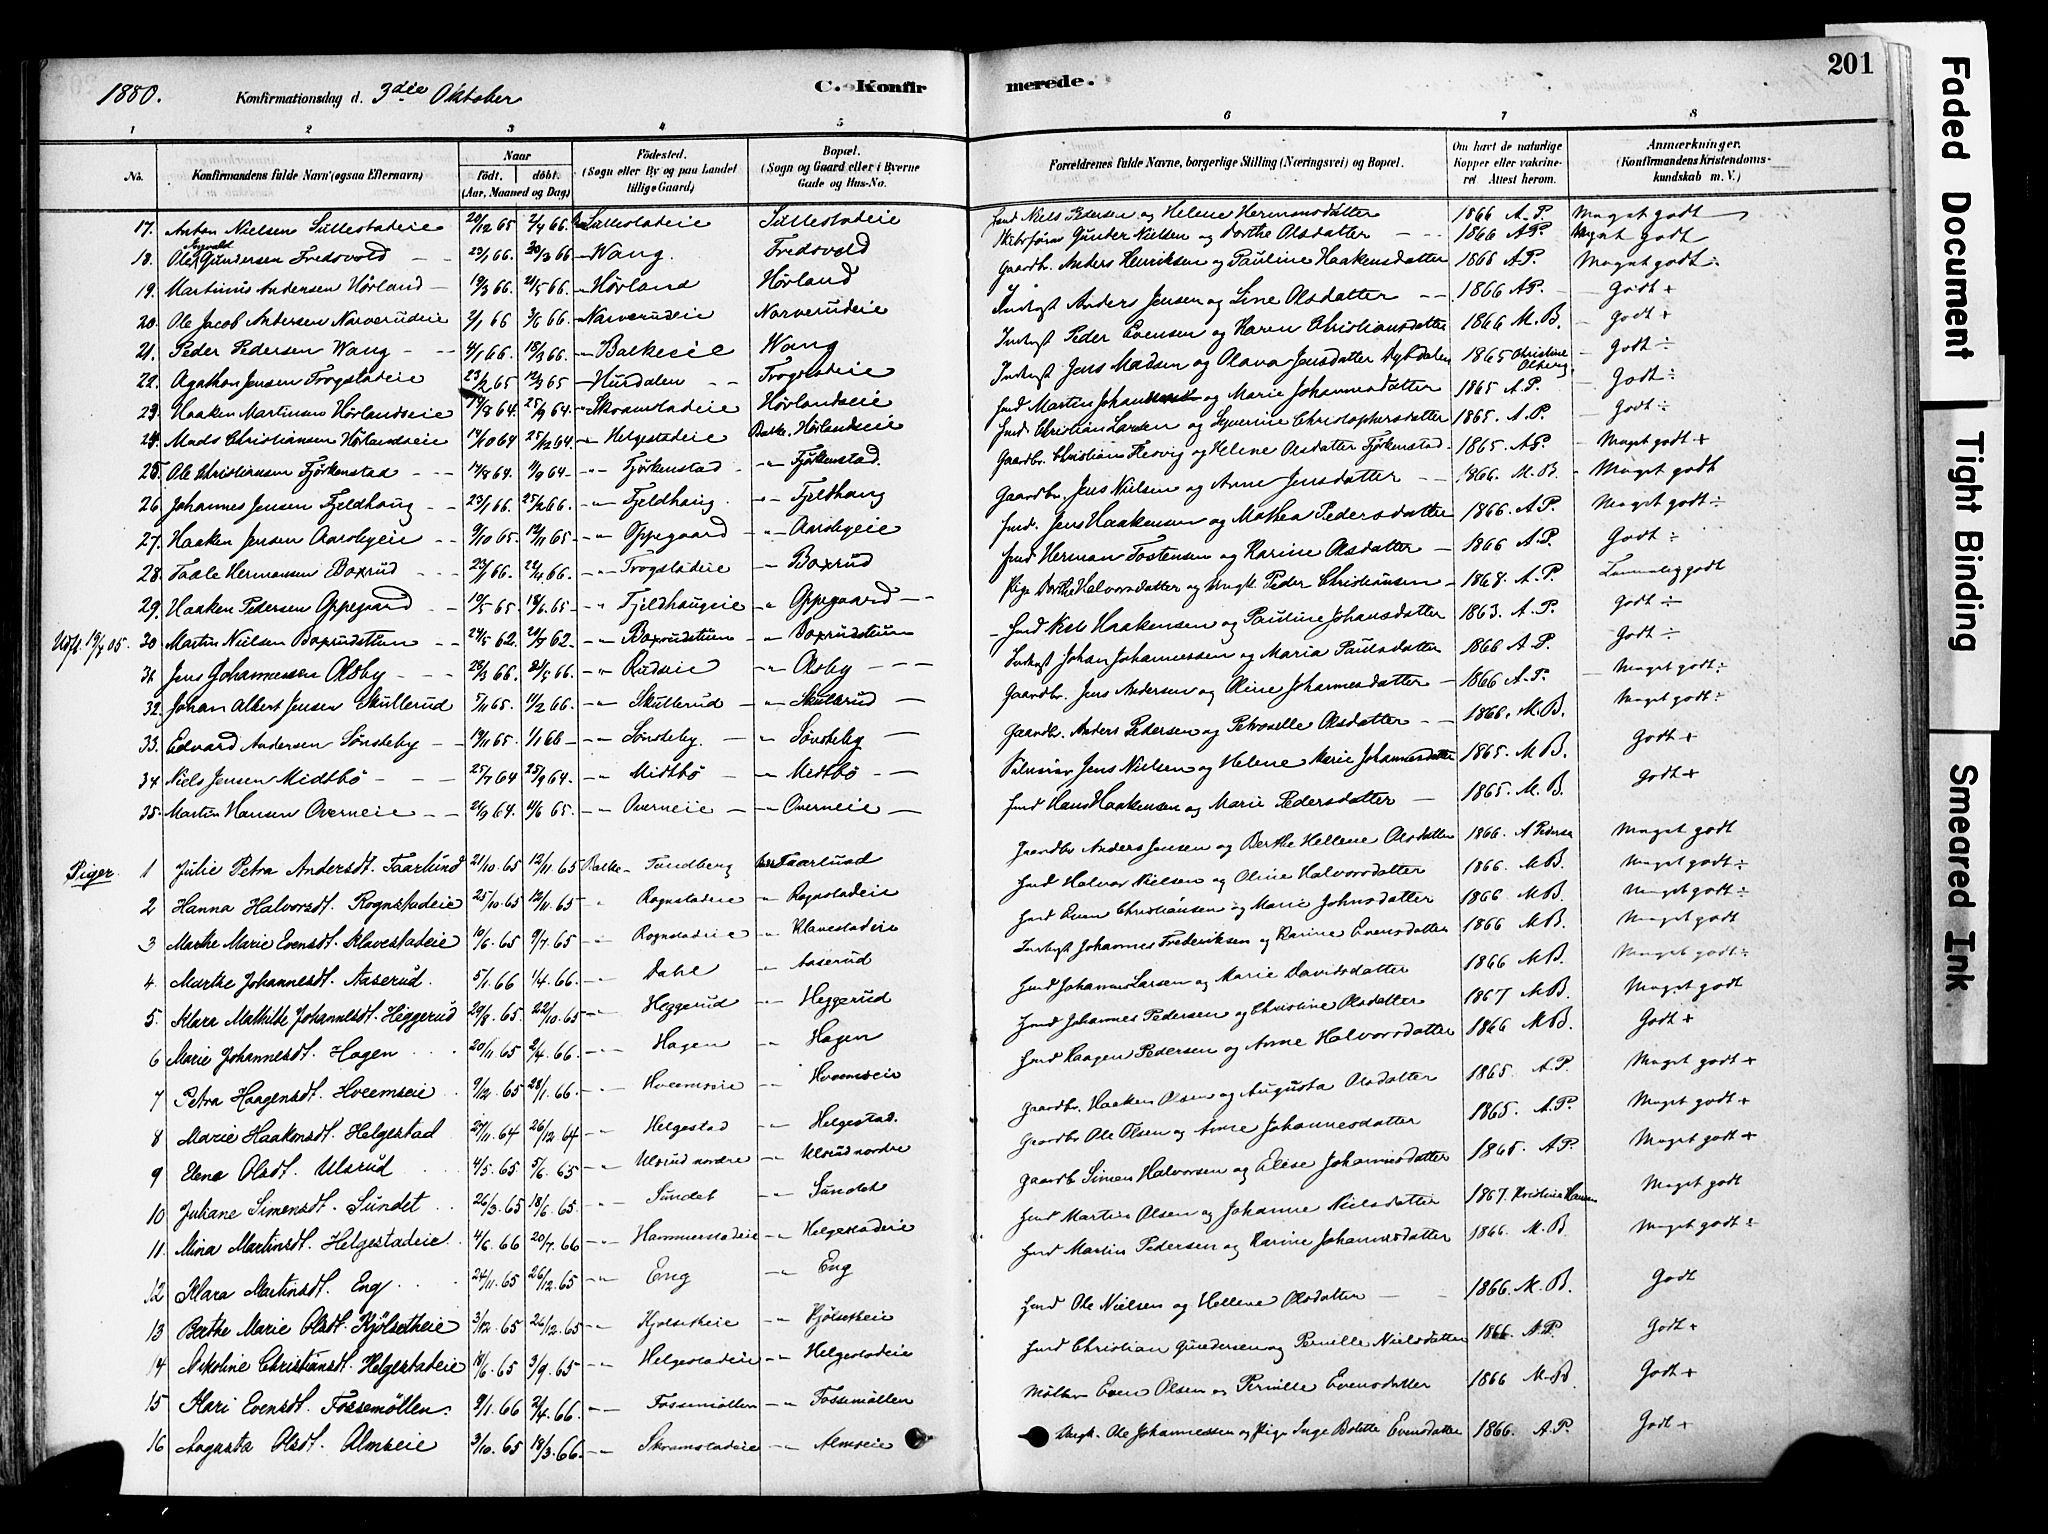 201
1880. Konfirmationsdag d. 3die Oktober C. Konfirmerede.
1 2 3 4 5 6 7 8
No. Konfirmandens fulde Navn (ogsaa Efternavn) Naar født. døbt. (Aar, Maaned og Dag) Födested. (Sogn eller By og paa Landet tillige Gaard) Bopæl. (Sogn og Gaard eller i Byerne Gade og Hus-No. Forældrenes fulde Navne, borgerlige Stilling (Næringsvei) og Bopæl. Om havt de naturlige Kopper eller vakcineret. Attest herom. Anmærkninger. (Konfirmandens Kristendomskundskab m. V.)
17. Anton Nielsen Sullestadeie 20/12 65 2/4 66. Sullestadeie Sullestadeie Ind Niels Pedersen og Helene Hermansdatter 1866 A.P. Meget godt
18. Ole Gundersen Fredsvold 23/1 66. 30/3 66 Wang. Fredsvold Skibsfører Gunder Nielsen og Dorthe Olsdatter 1866 A.P. Meget godt
19. Martinus Andersen Hörland 19/3 66. 21/5 66. Hörland Hörland Gaardbr. Anders Henriksen og Pauline Haakensdatter 1866 A.P. Meget godt ÷
20. Ole Jacob Andersen Narverudeie 2/1 66 3/6 66. Narverudeie Narverudeie Inderst Anders Jensen og Line Olsdatter 1866 A.P. Godt +
21. Peder Pedersen Wang 4/1 66. 18/3 66. Balkeeie Wang Inderst Peder Evensen og Karen Christiansdatter 1866 M.B. Godt +
22. Agathon Jensen Trogstadeie 23/2 65 12/3 65 Hurdalen Trogstadeie Inderst Jens Madsen og Olava Jensdatter Dybdalen 1865 Christine Olberg Godt ÷
23. Haaken Martinsen Hörlandseie 14/8 64. 25/9 64. Skramstadeie Hörlandseie Ind Martin Johannesen og Marie Johannesdatter 1865 A.P. Godt ÷
24. Mads Christiansen Hörlandseie 14/10 64 25/12 64. Helgestadeie Balke. Hörlandseie Ind Christian Larsen og Syverine Christophersdatter 1865. A.P. Godt ÷
25. Ole Christiansen Fjörkenstad 14/8 64. 11/9 64. Fjörkenstad Fjörkenstad. Gaardbr. Christian Flesvig og Helene Olsdatter Fjörkenstad 1865. A.P. Meget godt +
26. Johannes Jensen Fjeldhaug 23/1 66. 25/2 66. Fjeldhaug. Fjeldhaug Gaardbr. Jens Nielsen og Anne Jensdatter 1866. M.B. Meget godt
27. Haaken Jensen Aarsbyeie 9/10 65. 12/11 65. Oppegaard Aarsbyeie Ind. Jens Haakensen og Mathea Pedersdatter 1866 A.P. Meget godt ÷
28. Taale Hermansen Boxrud 23/1 66. 22/4 66. Trogstadeie Boxrud Ind Herman Tostensen og Karine Olsdatter 1866 A.P. Godt ÷
29. Haaken Pedersen Oppegaard 19/5 65. 18/6 65. Fjeldhaugeie Oppegaard Pige Dorthe Halvorsdatter og Ungk. Peder Christiansen 1868. A.P. Temmelig godt
Udfl. 19/4 05. 30. Martin Nielsen Boxrudstuen 24/5 62. 20/7 62. Boxrudstuen Boxrudstuen Ind Niels Haakensen og Pauline Johansdatter 1863. A.P. godt ÷
31. Jens Johannessen Olsby 28/3 66. 21/5 66. Rudseie Olsby Inderst Johan Johannessen og Maria Paulsdatter 1866 A.P. Godt ÷
32. Johan Albert Jensen Skullerud 5/11 65. 11/2 66. Skullerud Skullerud Gaardbr. Jens Andersen og Oline Johannesdatter 1866 A.P. Meget godt ÷
33. Edvard Andersen Sönsteby 19/11 65. 1/1 66 Sönsteby. Sönsteby Gaardbr. Anders Pedersen og Petronelle Olsdatter 1866. M.B. Meget godt ÷
34 Niels Jensen Midtbö 25/7 64 25/9 64. Midtbö Midtbö Jens Nielsen og Helene Marie Johannesdatter 1865. M.B. Godt +
35. Martin Hansen Overneie 21/9 64. 11/6 65. Overneie Overneie Ind Hans Haakensen og Marie Pedersdatter 1865. M.B. godt +
Piger. 1 Julie Petra Andersdt. Faarlund 21/10. 65 12/11. 65 Balke Tandberg Faarlund Gaardbr Anders Jensen og Berthe Hellene Olsdatter 1866. A Pedersen Meget godt
2 Hanna Halvorsdt. Rognstadeie 25/10. 65 12/11. 65 Rognstadeie Rognstadeie Ind Halvor Nielsen og Oline Halvorsdatter 1866. M.B. Meget godt ÷
3 Marthe Marie Evensdt. Klavestadeie 10/6. 65 9/7. 65 Rognstadeie Klavestadeie Ind Even Christiansen og Marie Johnsdatter 1866 M.B. Meget godt ÷
4. Marthe Johannesdt. Aaserud. 5/1. 66 1/4. 66 Dahl Aaserud Inderst Johannes Frederiksen og Karine Evensdatter 1866 M.B. Meget godt
5. Klara Mathilde Johannesdt. Heggerud 20/8. 65. 22/10. 65 Heggerud Heggerud Ind Johannes Larsen og Marie Davidsdatter 1866 M.B. Meget godt ÷
6 Marie Johannesdt. Hagen 20/11. 65 2/4. 66. Hagen Hagen Ind Johannes Pedersen og Christine Olsdatter 1867 M.B. Meget godt
7 Petra Haagensdt. Hveemseie 9/12. 65 28/1. 66. Hveemseie Hveemseie Ind Haagen Pedersen og Anne Halvorsdatter 1866 M.B. Godt +
8 Marie Haakensdt. Helgestad 27/11. 64 26/12. 64 Helgestad Helgestad. Gaardbr. Haaken Olsen og Augusta Olsdatter 1865. A.P. Meget godt +
9 Elena Olsdt. Ulsrud 4/5. 65 5/6. 65 Ulsrud nordre Ulsrud nordre Gaardbr Ole Olsen og Anne Johannesdatter 1865. A.P. Meget godt +
10 Juliane Simensdt. Sundet 26/3. 65 18/6. 65. Sundet Sundet Gaardb Simen Halvorsen og Elise Johannesdatter 1865. A.P. Meget godt +
11. Mina Martinsdt. Helgestadeie. 4/6. 66 20/7. 66 Hammerstadeie Helgestadeie Ind Martin Olsen og Johanne Nielsdatter 1867. Kristine Hansen Meget godt
12 Klara Martinsdt. Eng 24/11. 65 26/12. 65 Eng Eng Ind Martin Pedersen og Karine Johannesdatter 1866. M.B. Meget godt ÷
13 Berthe Marie Olsdt. Kjölsetheie 3/12. 65 26/12. 65 Kjölsetheie Kjölsetheie Ind Ole Nielsen og Hellene Olsdatter 1866. M.B. Godt
14 Nikoline Christiansdt. Helgestadeie 18/6. 65 3/9. 65 Helgestadeie Helgestadeie Ind Christian Gundersen og Pernille Nielsdatter 1866. A.P. Godt +
15 Kari Evensdt. Fossemöllen. 9/1. 66 2/4. 66. Fossemöllen Fossemöllen Möller Even Olsen og Pernille Evensdatter 1866 M.B. Godt +
16 Augusta Olsdt. Almseie 3/10. 65 18/3. 66. Skramstadeie Almseie Ungk. Ole Johannessen og Pige Inge Bolette Evensdatter 1866. A.P. Godt +
Faded Document
Tight Binding
Smeared Ink